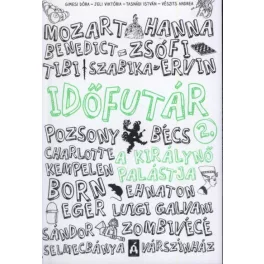 GIMESI DÓRA - JELI VIKTÓRIA - TASNÁDI ISTVÁN - VÉSZITS ANDREA
MOZART HANNA
BENEDICT ZSÓFI
TIBI SZABIKA ERVIN
IDŐFUTÁR
POZSONY BÉCS 2.
CHARLOTTE A KIRÁLYNŐ
KEMPELEN PALÁSTJA
BORN EHNATON
EGER LUIGI GALVANI
SÁNDOR ZOMBIVÉCÉ
SELMECBÁNYA VÁRSZÍNHÁZ